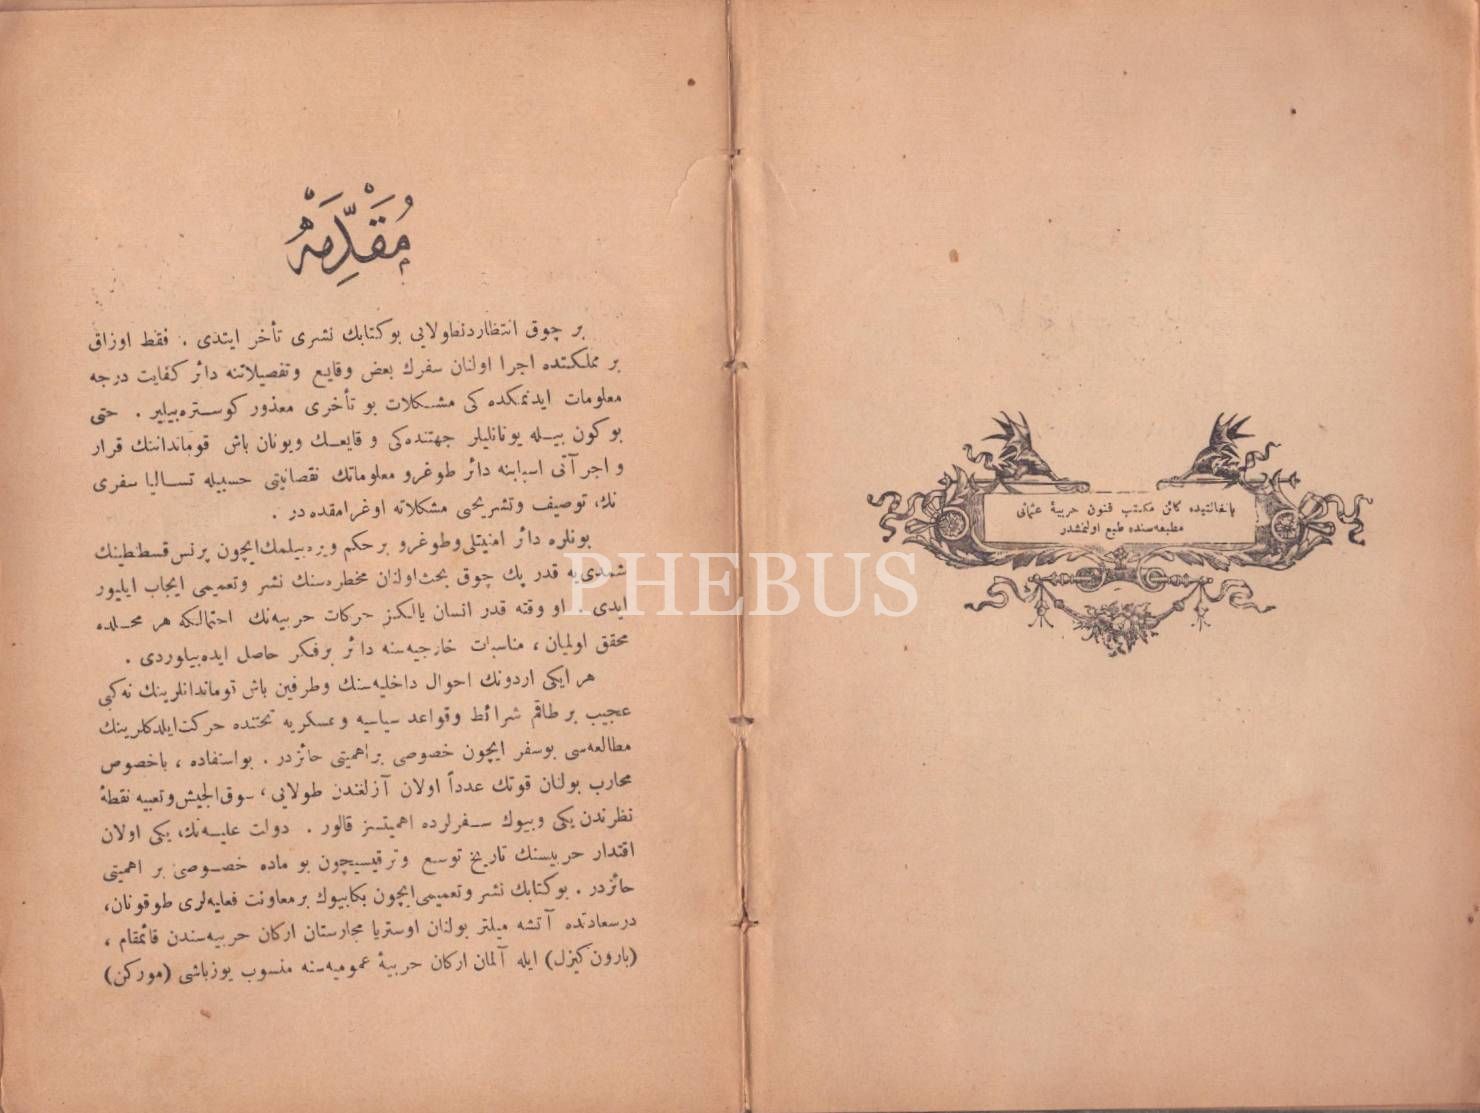 پانغالتیده كائن مكتب فنون حربیهٔ عثمانی
مطبعه‌سنده طبع اولنمشدر
مُقَدِّمَهْ
بر چوق انتظاردنطولایی بو كتابك نشری تأخر ایتدی . فقط اوزاق
بر مملكتده اجرا اولنان سفرك بعض وقایع وتفصیلاتنه دائر كفایت درجه
معلومات ایدنمكده كی مشكلات بو تأخری معذور كوستره‌بیلیر . حتی
بوكون بیله یونانلیلر جهتنده‌كی وقایعك ویونان باش قومانداننك قرار
و اجرآتی اسبابنه دائر طوغرو معلوماتك نقصانیتی حسبیله تسالیا سفری
نك، توصیف وتشریحی مشكلاته اوغرامقده‌در .
بونلره دائر امنیتلی‌وطوغرو برحكم ویره‌بیلمك‌ایچون پرنس قسطنطینك
شمدی‌یه قدر پك چوق بحث‌اولنان مخطره‌سنك نشر وتعمیمی ایجاب ایلیور
ایدی . او وقته قدر انسان یالكز حركات حربیه‌نك احتمالكه هر محلده
محقق اولمیان ، مناسبات خارجیه‌سنه دائر برفكر حاصل ایده‌بیلوردی .
هر ایكی اردونك احوال داخلیه‌سنك وطرفین باش قوماندانلرینك نه‌كبی
عجیب بر طاقم شرائط وقواعد سیاسیه وعسكریه تحتنده حركت‌ایلدكلرینك
مطالعه‌سی بوسفر ایچون خصوصی براهمیتی حائزدر . بواستفاده ، باخصوص
محارب بولنان قوتك عدداً اولان آزلغندن طولایی، سوق‌الجیش‌وتعبیه نقطهٔ
نظرندن یكی وبیوك سفرلرده اهمیتسز قالور . دولت علیه‌نك، یكی اولان
اقتدار حربیسنك تاریخ توسع وترقیسیچون بو ماده خصوصی بر اهمیتی
حائزدر . بوكتابك نشر وتعمیمی‌ایچون بكابیوك برمعاونت فعلیه‌لری طوقونان،
درسعادتده آتشه میلتر بولنان اوستریا مجارستان اركان حربیه‌سندن قائمقام ،
(بارون كیزل) ایله آلمان اركان حربیهٔ عمومیه‌سنه منسوب یوزباشی (موركن)
PHEBUS